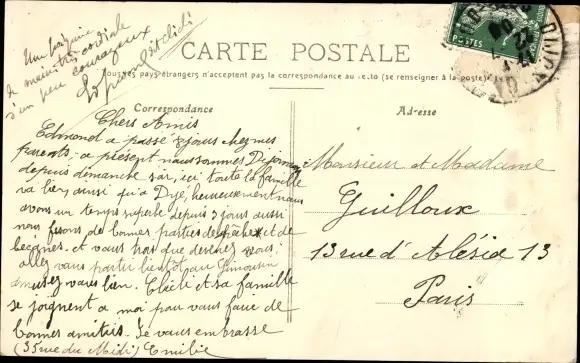 Une poignée
de main très cordiale
d'un peu courageux
CARTE POSTALE
Tous les pays étrangers n'acceptent pas la correspondance au recto (se renseigner à la poste)
POSTES
DIJON
Correspondance
Adresse
Chers Amis
Edmond a passé 8 jours chez mes
parents, a présent nous sommes Dijon
depuis dimanche soir, ici toute la famille
va bien, ainsi qu'a Dye, heureusement nous
avons un temps superbe depuis 3 jours aussi
nous fesons de bonnes parties de pêche et de
becanes. et vous trois que devenez vous,
allez vous partir bientôt au Limousin
amusez vous bien. Clicli et sa famille
se joignent a moi pour vous faire de
bonnes amitiés. Je vous embrasse
(35 rue du Midi) Emilie
Monsieur et Madame
Guilloux
13 rue d'Alésia 13
Paris